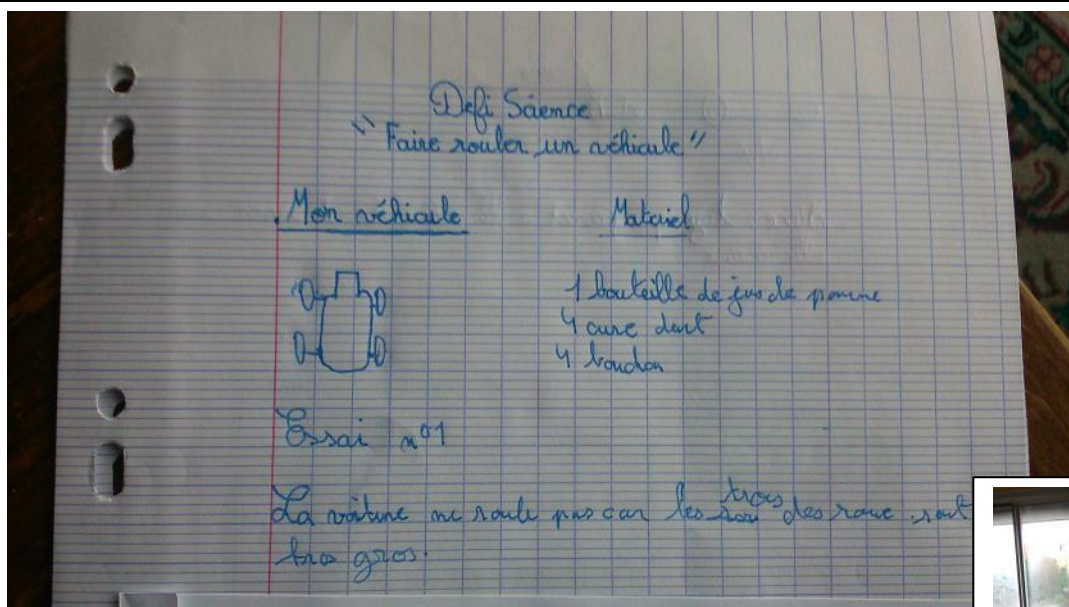 Defi Science
"Faire rouler un véhicule"
Mon véhicule
Materiel
1 bouteille de jus de pomme
4 cure dent
4 bouchon
Essai n°1
La voiture ne roule pas car les trous des roue sont
tros gros.